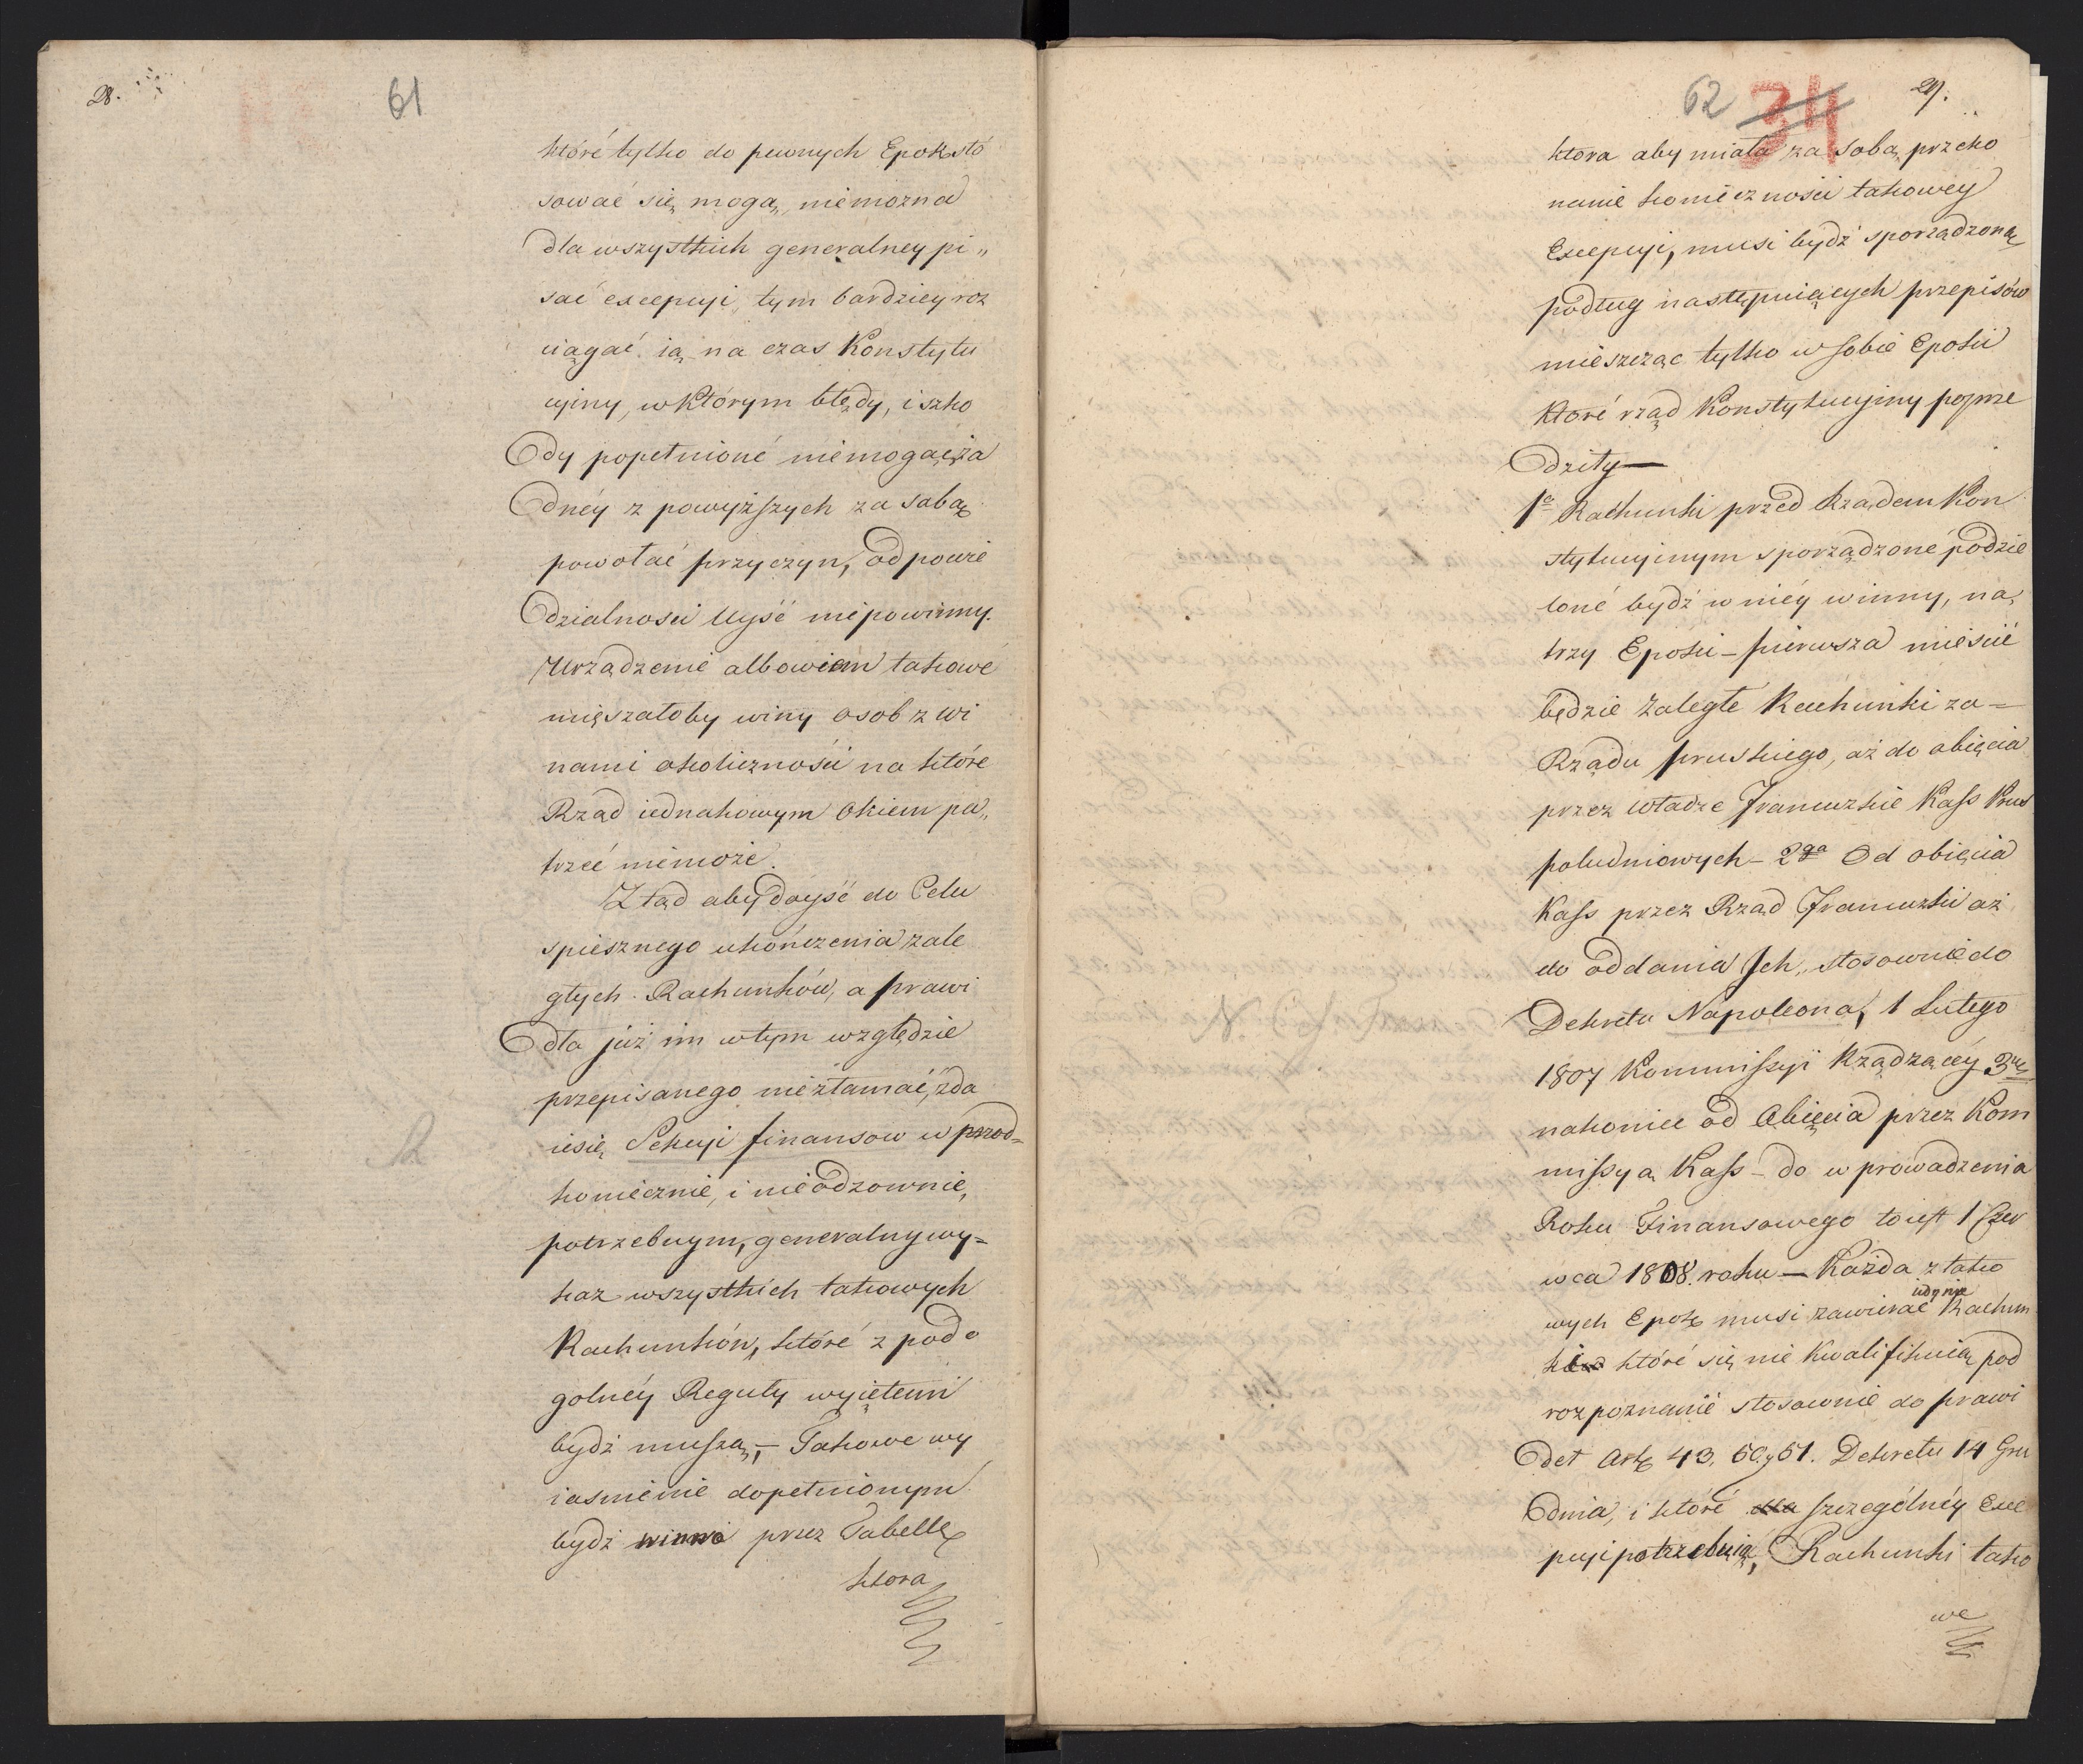 28.
61
które tylko do pewnych Epok sto
sować się mogą, niemożna
dla wszystkich generalney pi„
sać excepcyi, tym bardziey roz
ciągać ią na czas Konstytu
cyiny, w którym błędy, i szko
dy popełnione niemogąc ża
dnéy z powyższych za sabą
powołać przyczyn, odpowie
dzialnosci uyść niepowinny.
Urządzenie albowiem takowe
mięszałoby winy osob z wi
nami okoliczności na które
Rząd iednakowym okiem pa„
trzeć niemoże.
Ztąd aby doyść do Celu
spiesznego ukończenia zale
głych Rachunków, a prawi
dła już im w tym względzie
przepisanego niezłamać, zda
iesię Sekcyi finansow w przod=
koniecznie, i nieodzownie,
potrzebnym, generalny wy=
kaz wszystkich takowych
Rachunków, które z pod o
golnéy Reguły wyiętemi
bydź muszą, – Takowe wy
iasnienie dopełnionym
bydź winno przez Tabellę
ktora
62
34
29.
ktora aby miała za sobą przeko
nanie konieczności takowey
Excepcyi, musi bydź sporządzoną
podług następuiących przepisów
mieszcząc tylko w sobie Epoki
które rząd Konstytucyiny poprze
dziły —
1a Rachunki przed Rządem Kon
stytucyinym sporządzone podzie
loné bydź w niéy winny, na,
trzy Epoki – pierwsza mieście
będzie zaległe Rachunki za =
Rządu pruskiego, aż do obięcia
przez władze Francuzkie Kass Prus
poludniowych – 2ga Od obięcia
Kass przez Rząd Francuzki aż
do oddania Ich, stosownie do
Dekretu Napoleona, 1 Lutego
1807 Kommissyi Rządzącéy 3cia
nakoniec od Obięcia przez Kom
missyą Kass – do wprowadzenia
Roku Finansowego to iest 1 Czer
wca 1808. roku — Każda z tako
wych Epok musi zawierać iedynie Rachun
ki które się nie kwalifikuią pod
rozpoznanie stosownie do prawi
deł Art 43. 50. y 51. Dekretu 14 Gru
dnia, i które szczególnéy Exce
pcyi potrzebuią, Rachunki tako
we